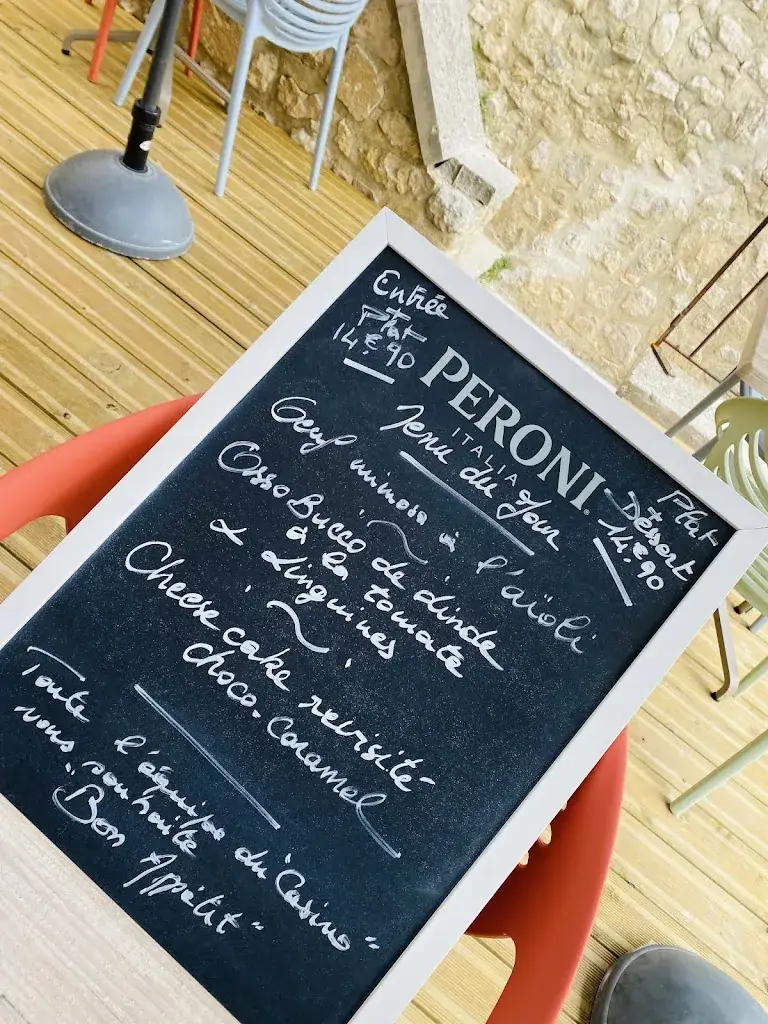 Entrée
Plat
14€90
PERONI
ITALIA
Menu du Jour
Plat
Dessert
14€90
Oeuf mimosa à l'aïoli
Osso Bucco de dinde
à la tomate
& Linguines
Cheese cake revisité
choco. Caramel
Toute l'équipe du "Casino"
vous souhaite
"Bon Appétit"